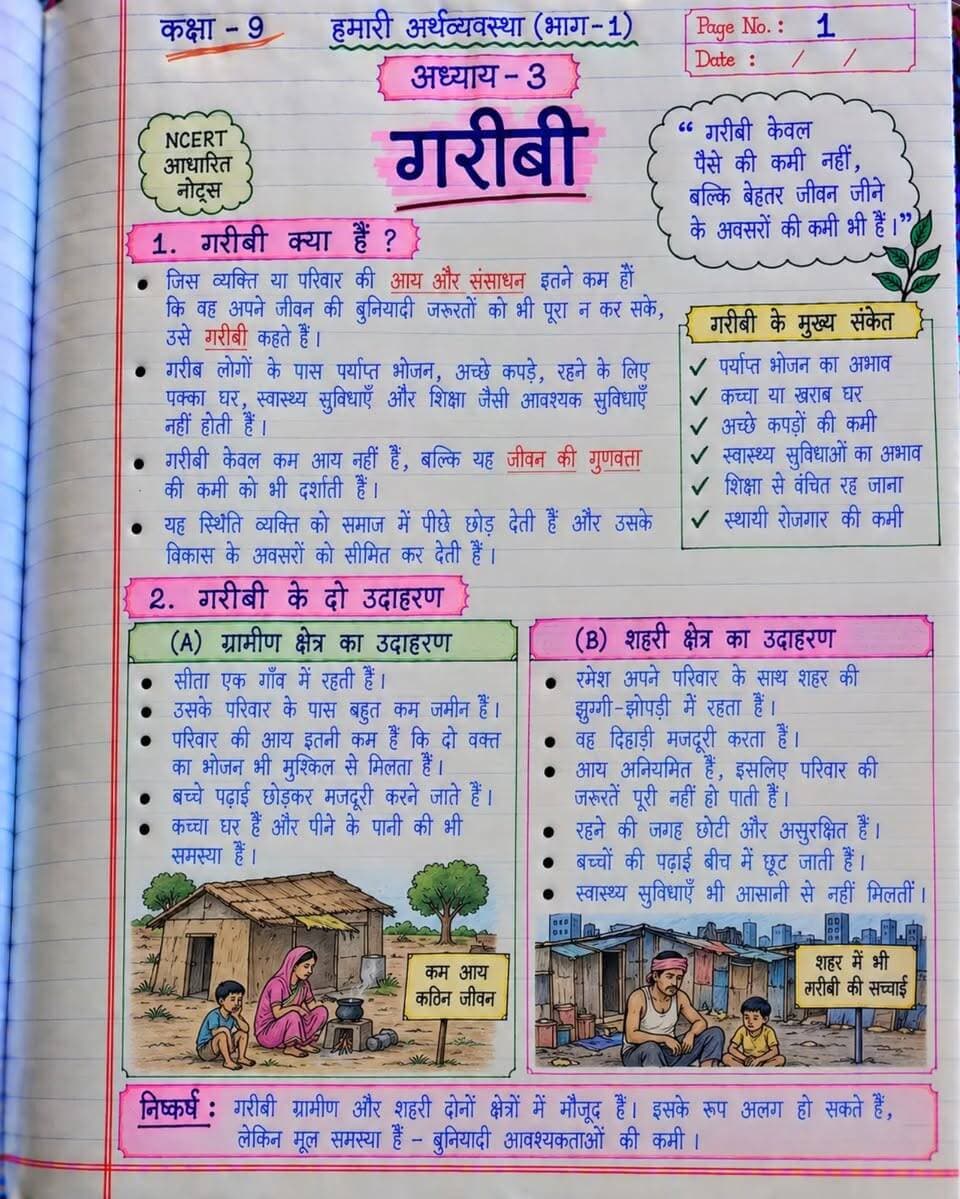 कक्षा - 9
हमारी अर्थव्यवस्था (भाग-1)
Page No. : 1
Date : / /
अध्याय - 3
गरीबी
NCERT
आधारित
नोट्स
“ गरीबी केवल
पैसे की कमी नहीं,
बल्कि बेहतर जीवन जीने
के अवसरों की कमी भी हैं।”
1. गरीबी क्या हैं ?
• जिस व्यक्ति या परिवार की आय और संसाधन इतने कम हों
कि वह अपने जीवन की बुनियादी जरूरतों को भी पूरा न कर सके,
उसे गरीबी कहते हैं।
• गरीब लोगों के पास पर्याप्त भोजन, अच्छे कपड़े, रहने के लिए
पक्का घर, स्वास्थ्य सुविधाएँ और शिक्षा जैसी आवश्यक सुविधाएँ
नहीं होती हैं।
• गरीबी केवल कम आय नहीं हैं, बल्कि यह जीवन की गुणवत्ता
की कमी को भी दर्शाती हैं।
• यह स्थिति व्यक्ति को समाज में पीछे छोड़ देती हैं और उसके
विकास के अवसरों को सीमित कर देती हैं।
गरीबी के मुख्य संकेत
✓ पर्याप्त भोजन का अभाव
✓ कच्चा या खराब घर
✓ अच्छे कपड़ों की कमी
✓ स्वास्थ्य सुविधाओं का अभाव
✓ शिक्षा से वंचित रह जाना
✓ स्थायी रोजगार की कमी
2. गरीबी के दो उदाहरण
(A) ग्रामीण क्षेत्र का उदाहरण
• सीता एक गाँव में रहती हैं।
• उसके परिवार के पास बहुत कम जमीन हैं।
• परिवार की आय इतनी कम हैं कि दो वक्त
का भोजन भी मुश्किल से मिलता हैं।
• बच्चे पढ़ाई छोड़कर मजदूरी करने जाते हैं।
• कच्चा घर हैं और पीने के पानी की भी
समस्या हैं।
कम आय
कठिन जीवन
(B) शहरी क्षेत्र का उदाहरण
• रमेश अपने परिवार के साथ शहर की
झुग्गी-झोपड़ी में रहता हैं।
• वह दिहाड़ी मजदूरी करता हैं।
• आय अनियमित हैं, इसलिए परिवार की
जरूरतें पूरी नहीं हो पाती हैं।
• रहने की जगह छोटी और असुरक्षित हैं।
• बच्चों की पढ़ाई बीच में छूट जाती हैं।
• स्वास्थ्य सुविधाएँ भी आसानी से नहीं मिलतीं।
शहर में भी
गरीबी की सच्चाई
निष्कर्ष : गरीबी ग्रामीण और शहरी दोनों क्षेत्रों में मौजूद हैं। इसके रूप अलग हो सकते हैं,
लेकिन मूल समस्या हैं - बुनियादी आवश्यकताओं की कमी।